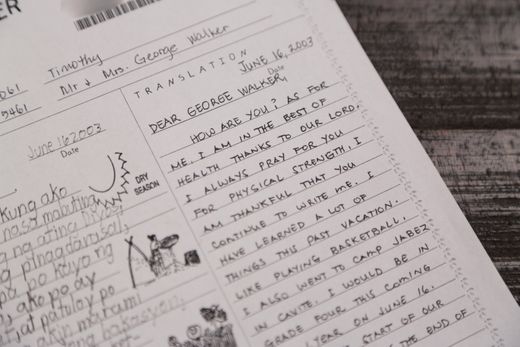 ER
Timothy
Mr & Mrs. George Walker
061
9461
June 16 2003
Date
DRY
SEASON
kung ako
nasa mabuting
ng ating
pinagdarasal
po kayo ng
ako po ay
at patuloy po
akin marami
bakasyon
TRANSLATION
JUNE 16, 2003
Date
DEAR GEORGE WALKER,
HOW ARE YOU? AS FOR
ME, I AM IN THE BEST OF
HEALTH THANKS TO OUR LORD.
I ALWAYS PRAY FOR YOU
FOR PHYSICAL STRENGTH. I
AM THANKFUL THAT YOU
CONTINUE TO WRITE ME. I
HAVE LEARNED A LOT OF
THINGS THIS PAST VACATION.
LIKE PLAYING BASKETBALL.
I ALSO WENT TO CAMP JABEZ
IN CAVITE. I WOULD BE IN
GRADE FOUR THIS COMING
YEAR ON JUNE 16.
START OF OUR
THE END OF